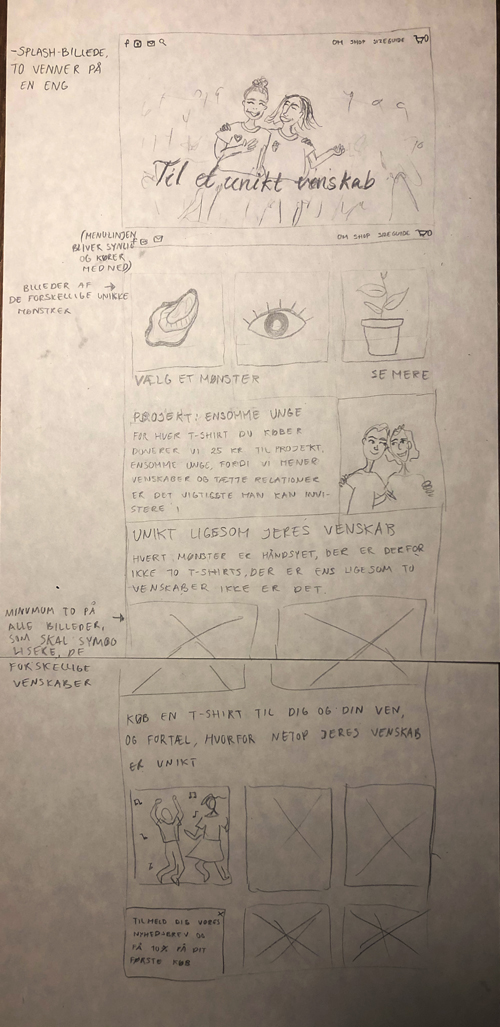 -SPLASH-BILLEDE,
TO VENNER PÅ
EN ENG
OM SHOP SIZEGUIDE
Til et unikt venskab
(MENULINJEN
BLIVER SYNLIG
OG KØRER
MED NED)
OM SHOP SIZEGUIDE
BILLEDER AF
DE FORSKELLIGE UNIKKE
MØNSTRER
VÆLG ET MØNSTER
SE MERE
PROJEKT: ENSOMME UNGE
FOR HVER T-SHIRT DU KØBER
DONERER VI 25 KR TIL PROJEKT,
ENSOMME UNGE, FORDI VI MENER
VENSKABER OG TÆTTE RELATIONER
ER DET VIGTIGSTE MAN KAN INVI-
STERE I
UNIKT LIGESOM JERES VENSKAB
HVERT MØNSTER ER HÅNDSYET, DER ER DERFOR
IKKE TO T-SHIRTS, DER ER ENS LIGESOM TO
VENSKABER IKKE ER DET.
MINUMUM TO PÅ
ALLE BILLEDER,
SOM SKAL SYMBO
LISERE, DE
FORSKELLIGE
VENSKABER
KØB EN T-SHIRT TIL DIG OG DIN VEN,
OG FORTÆL, HVORFOR NETOP JERES VENSKAB
ER UNIKT
TILMELD DIG VORES
NYHEDSBREV OG
FÅ 10% PÅ DIT
FØRSTE KØB